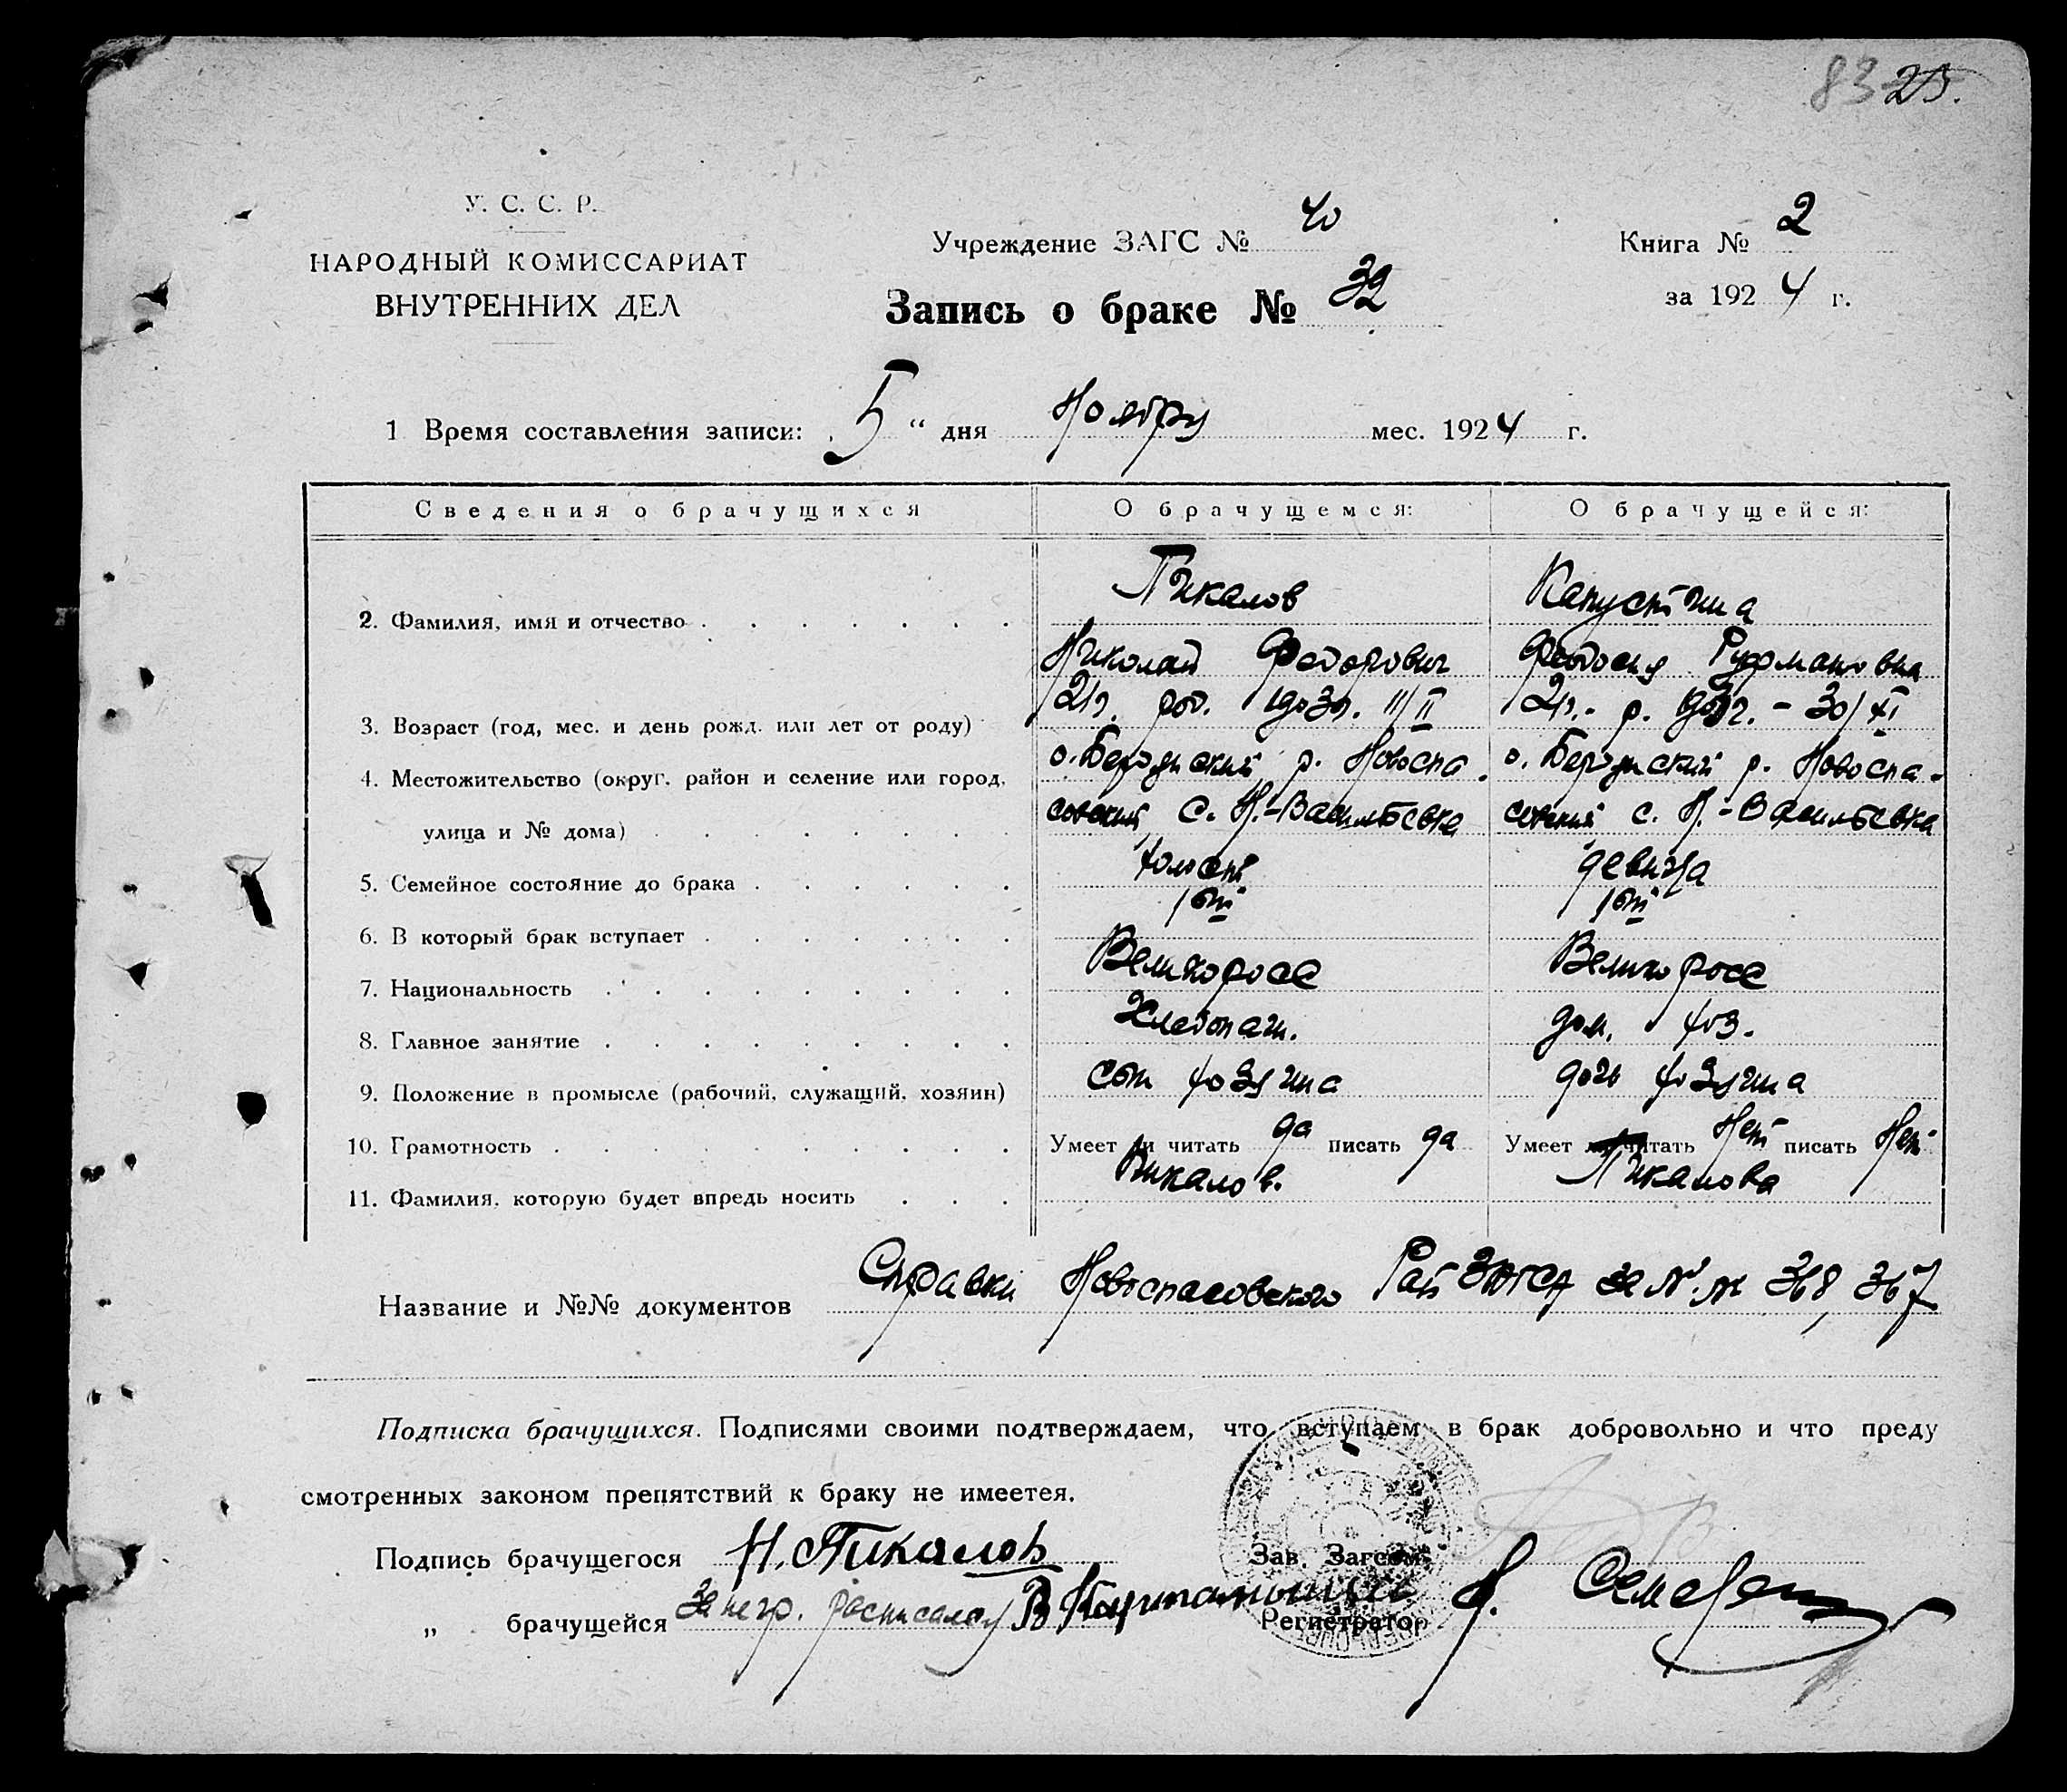 83 25.
У. С. С. Р.
НАРОДНЫЙ КОМИССАРИАТ
ВНУТРЕННИХ ДЕЛ
Учреждение ЗАГС № 40
Запись о браке № 32
Книга № 2
за 1924 г.
1 Время составления записи: 5 " дня Ноября мес. 1924 г.
Сведения о брачущихся О брачущемся: О брачущейся:
2. Фамилия, имя и отчество Пикалов Капустина
Николай Федорович Феодосия Руфмановна
3. Возраст (год, мес. и день рожд. или лет от роду) 21г. род. 1903г. 11/II 21г. - р. 1903г. - 30/XI
4. Местожительство (округ, район и селение или город, о. Бердянский р. Новоспа- о. Бердянский р. Новоспа-
улица и № дома) совский с. Н.-Васильевка совский с. Н.-Васильевка
5. Семейное состояние до брака холост девица
6. В который брак вступает 1ый 1ый
7. Национальность Великоросс Великоросс
8. Главное занятие Хлебопаш. дом. хоз.
9. Положение в промысле (рабочий, служащий, хозяин) сын хозяина дочь хозяина
10. Грамотность Умеет ли читать да писать да Умеет ли читать Нет писать Нет
11. Фамилия, которую будет впредь носить Пикалов. Пикалова
Название и №№ документов Справки Новоспасовского РайЗАГСА за №№ 368, 367
Подписка брачущихся. Подписями своими подтверждаем, что вступаем в брак добровольно и что преду
смотренных законом препятствий к браку не имеетея.
Подпись брачущегося Н. Пикалов Зав. Загсом
„ брачущейся За негр. росписался В Регистратор